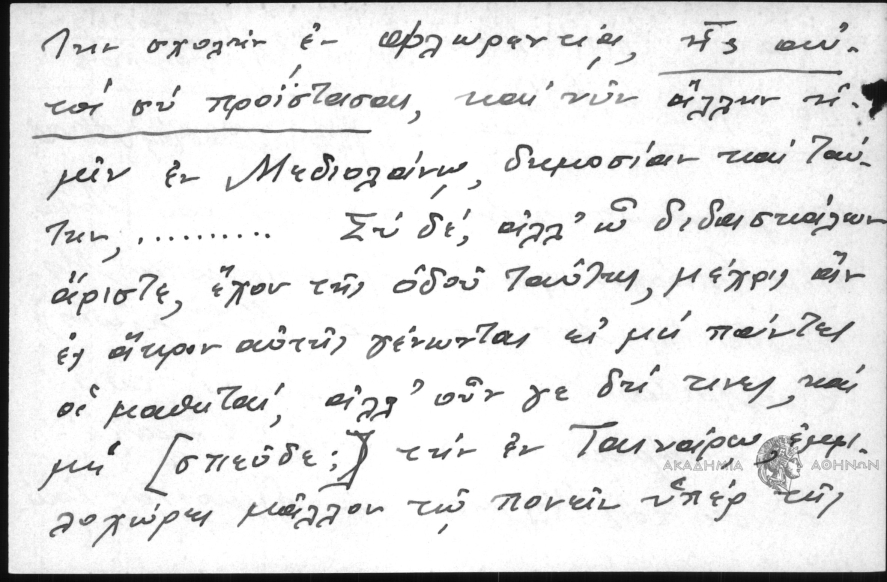 την σχολὴν ἐν Φλωρεντίᾳ, ἧς αὐ-
τοί σύ προΐστασαι, καὶ νῦν ἄλλην ἡ-
μῖν ἐν Μεδιολάνῳ, δημοσίαν καὶ ταύ-
την, .......... Σύ δέ, ἀλλ' ὦ διδασκάλων
ἄριστε, ἔχου τῆς ὁδοῦ ταύτης, μέχρις ἄν
ἐς ἄκρον αὐτῆς γένωνται εἰ μή πάντες
οἱ μαθηταί, ἀλλ' οὖν γε δή τινες, καί
μή [σπεῦδε;] τήν ἐν Ταινάρῳ,
μᾶλλον τῷ πονεῖν ὑπέρ τῆς
ΑΚΑΔΗΜΙΑ ΑΘΗΝΩΝ